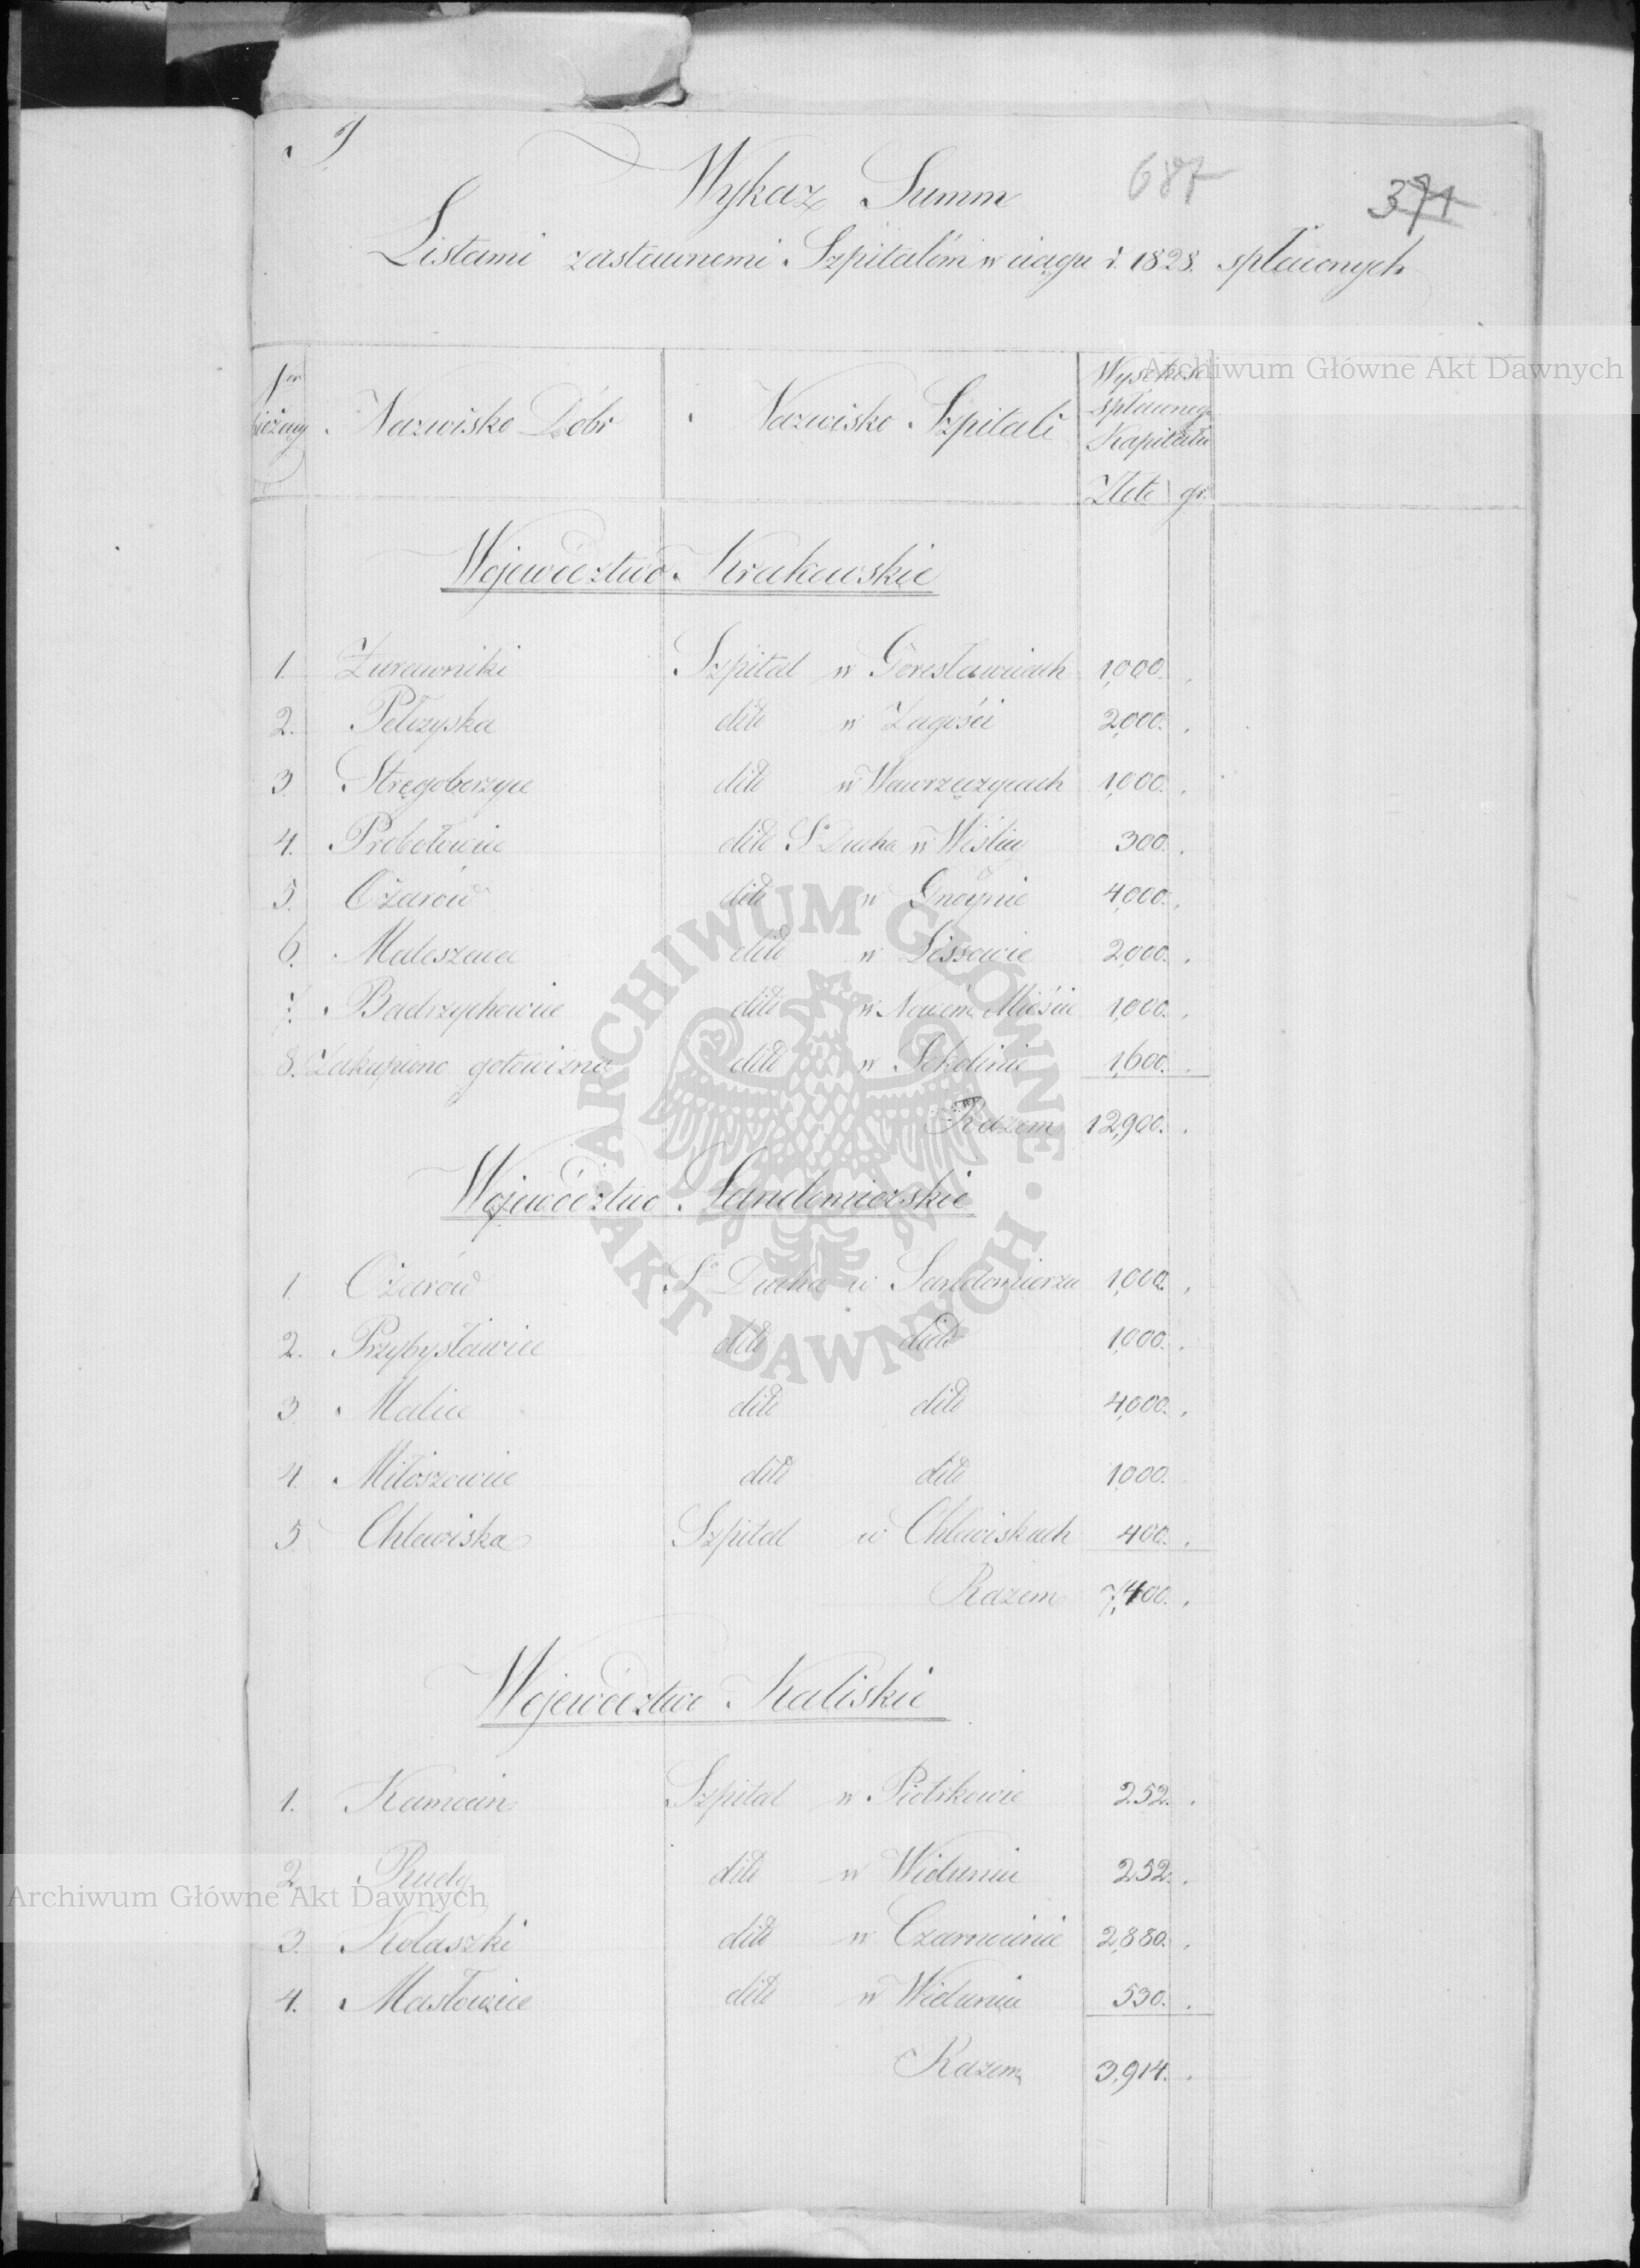 J
687
371
Wykaz Summ
Listami zastawnemi Szpitalóm w ciągu r. 1828. spłaconych
Nr bieżący
Nazwisko Dóbr
Nazwisko Szpitali
Wysokość
spłaconego
Kapitału
Złote gr.
Archiwum Główne Akt Dawnych
Wojewodztwo Krakowskie
1. Zurawniki Szpital w Gorosławicach 1,000. .
2. Pełczyska ditto w Zagości 2,000. .
3. Stręgoborzyce ditto w Wawrzeczycach 1,000. .
4. Probołowice ditto S. Ducha w Wiślicy 300. .
5. Ożarów ditto w Gnoynie 4,000. .
6. Maleszowa ditto w Lissowie 2,000. .
7. Badrzychowice ditto w Nowém Mieście 1,000. .
8. Zakupiono gotowizną ditto w Sokolinie 1,600. .
Razem 12,900. .
Województwo Sandomierskie
1. Ożarów S. Ducha w Sandomierzu 1,000. .
2. Przybysławice ditto ditto 1,000. .
3. Malice ditto ditto 4,000. .
4. Miłoszowice ditto ditto 1,000.
5. Chlewiska Szpital w Chlewiskach 400. .
Razem 7,400. .
ARCHIWUM GŁÓWNE AKT DAWNYCH
Wojewodztwo Kaliskie
1. Kamocin Szpital w Piotrkowie 252. .
2. Rudy ditto w Wieluniu 252. .
3. Kolaszki ditto w Czarnocinie 2,880. .
4. Masłowice ditto w Wieluniu 530. .
Razem 3,914. .
Archiwum Główne Akt Dawnych